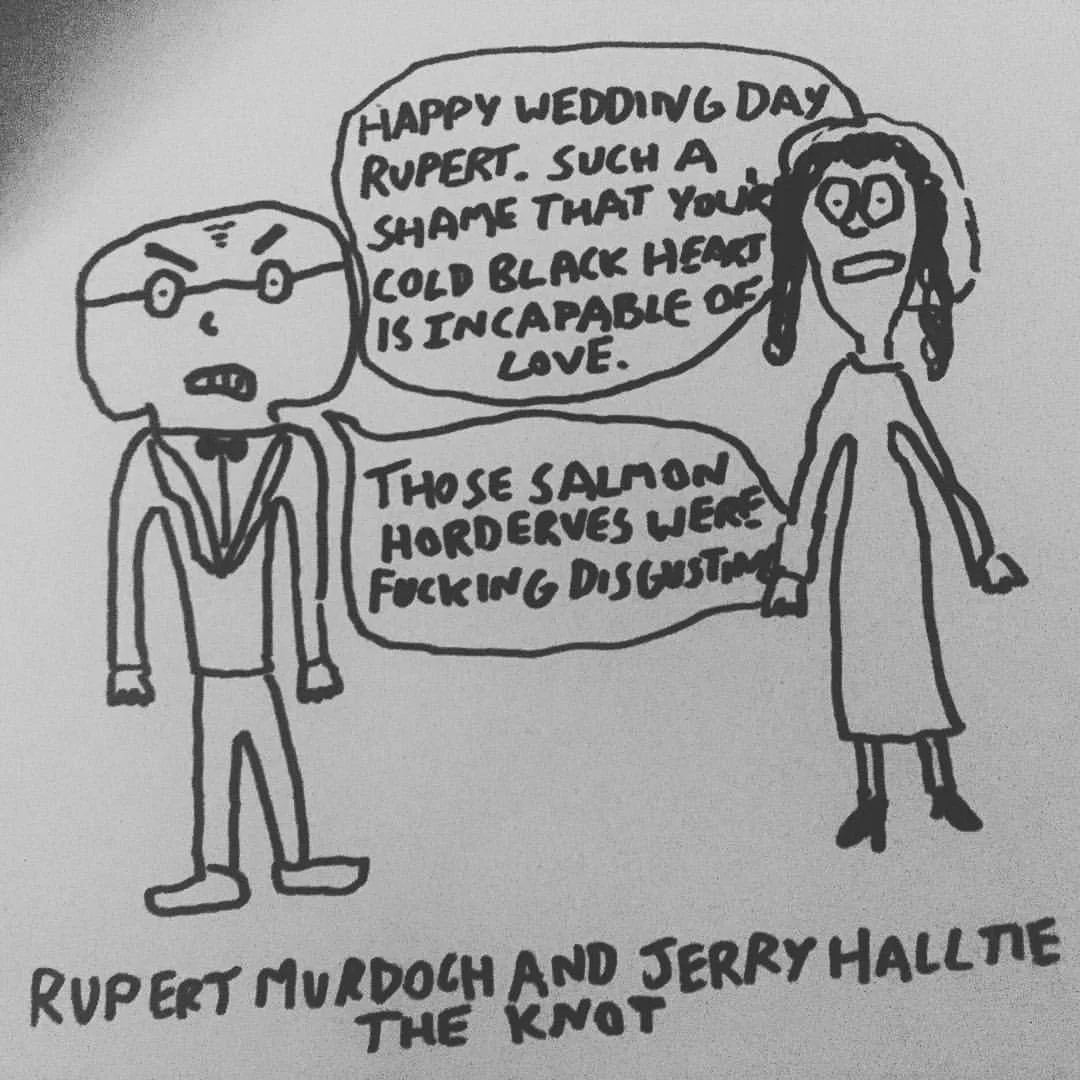 HAPPY WEDDING DAY
RUPERT. SUCH A
SHAME THAT YOUR
COLD BLACK HEART
IS INCAPABLE OF
LOVE.
THOSE SALMON
HORDERVES WERE
FUCKING DISGUSTING
RUPERT MURDOCH AND JERRY HALL TIE
THE KNOT